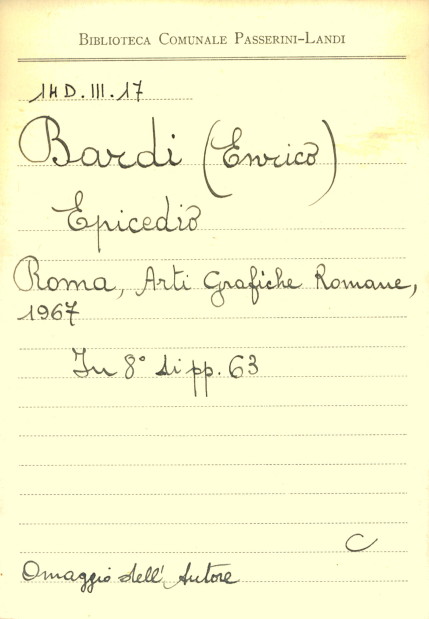 BIBLIOTECA COMUNALE PASSERINI-LANDI
14D.III.17
Bardi (Enrico)
Epicedio
Roma, Arti Grafiche Romane,
1967
In 8° di pp. 63
C
Omaggio dell'Autore